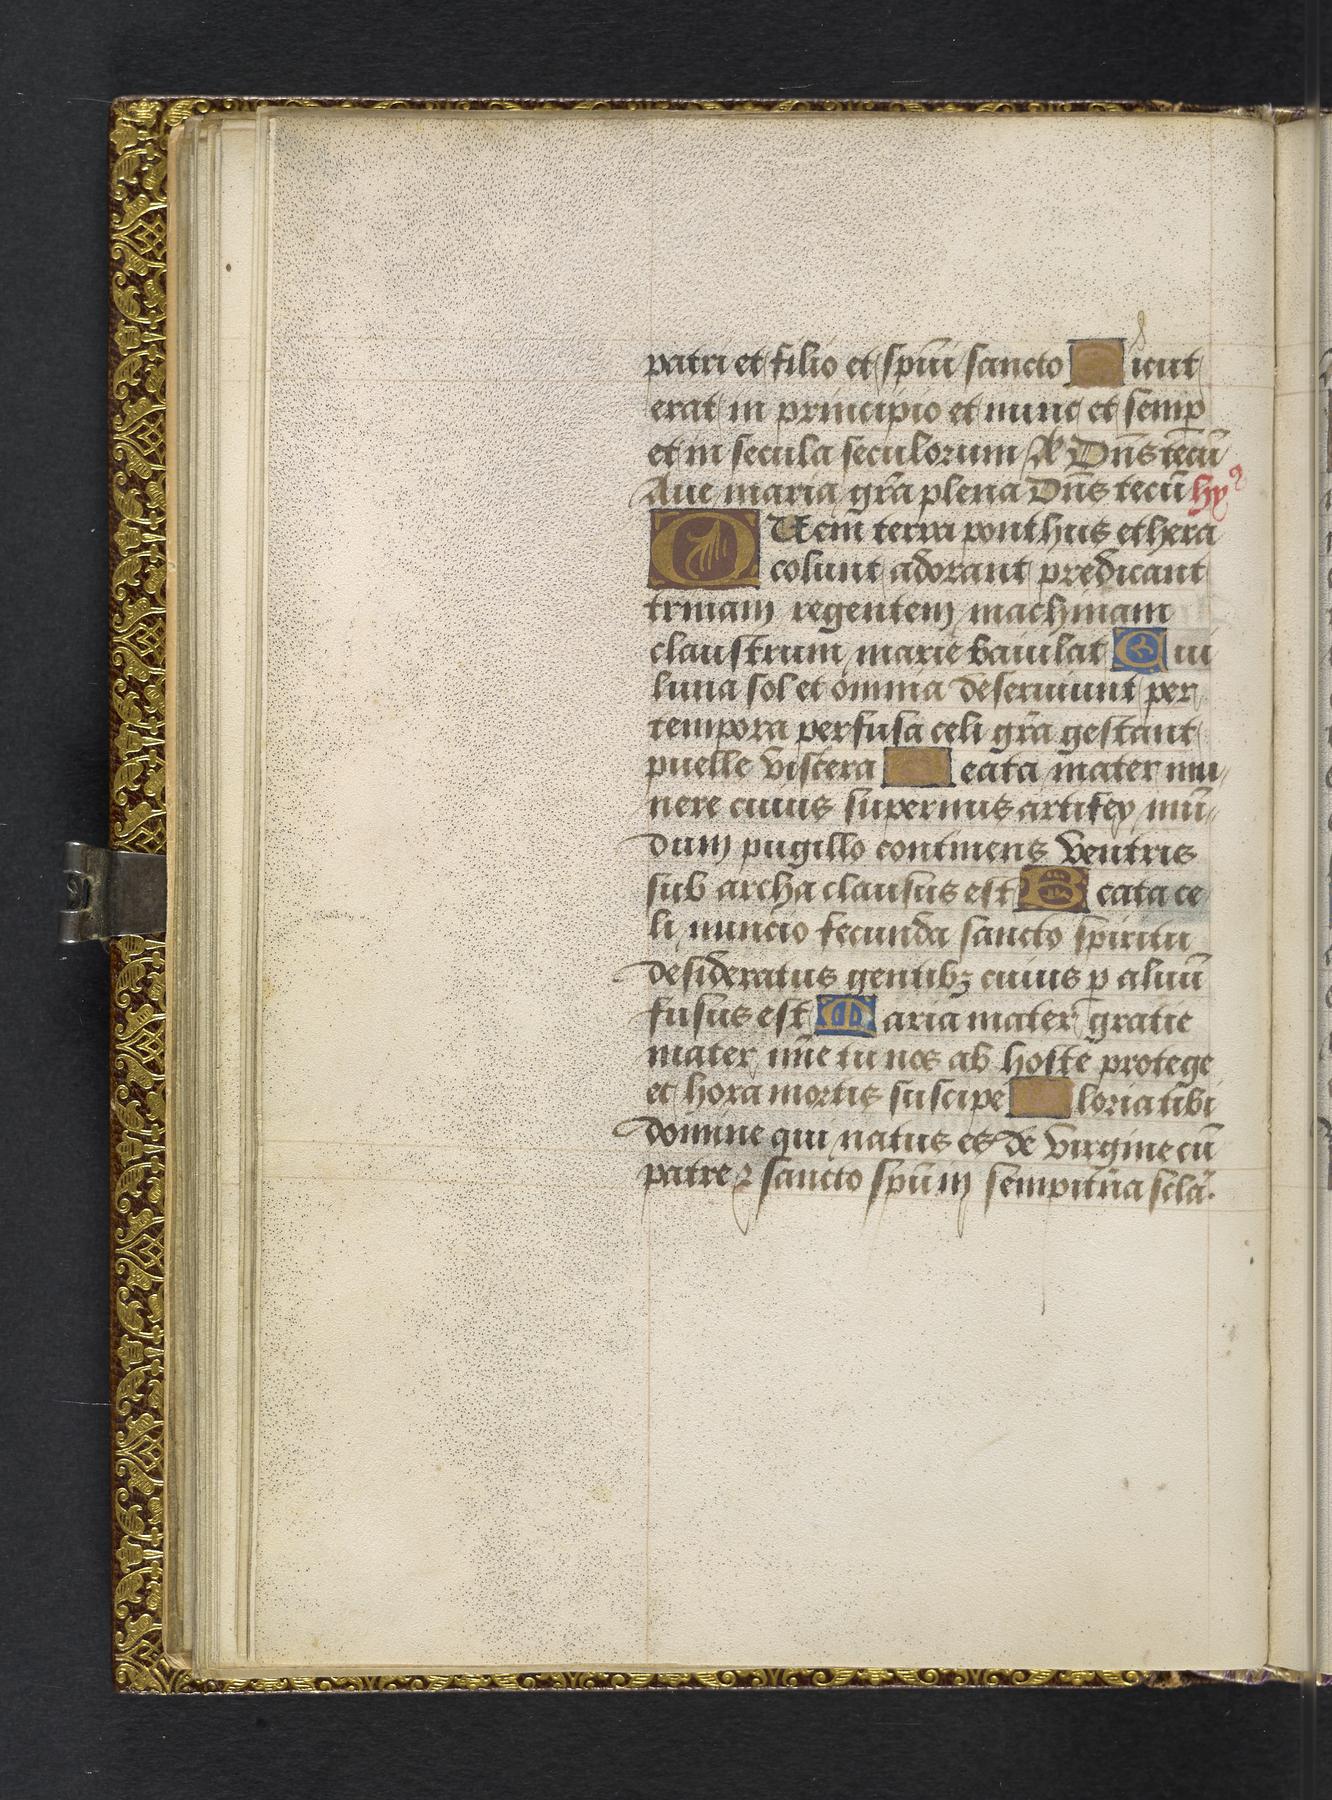 patri et filio et sp̄ui sancto Sicut
erat in principio et nunc et semꝑ
et in secula seculorum Ā Dn̄s tecū
Aue maria gr̄a plena Dn̄s tecū hyꝰ
QUem terra ponthus ethera
colunt adorant predicant
trinam regentem machinam
claustrum marie baiulat Cui
luna sol et omnia deseruiunt per
tempora perfusa celi gr̄a gestant
puelle viscera Beata mater mu
nere cuius supernus artifex mū
dum pugillo continens ventris
sub archa clausus est Beata ce
li nuncio fecunda sancto spiritu
desideratus gentibꝫ cuius ꝑ aluū
fusus est Maria mater gratie
mater mīe tu nos ab hoste protege
et hora mortis suscipe Gloria tibi
domine qui natus es de virgine cū
patre ⁊ sancto sp̄u in sempit̄na sc̄la.